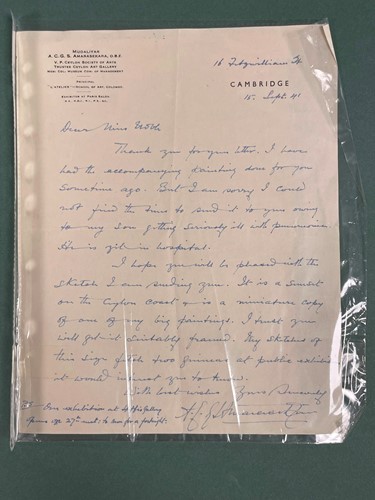 MUDALIYAR
A.C.G.S. AMARASEKARA, O.B.E.
V. P. CEYLON SOCIETY OF ARTS
TRUSTEE CEYLON ART GALLERY
COM. OF MANAGEMENT
PRINCIPAL
"L'ATELIER" (SCHOOL OF ART, COLOMBO)
EXHIBITOR AT PARIS SALON
16 Fitzwilliam St.
CAMBRIDGE
15. Sept. 
Dear Miss
Thank you for your letter. I have
had the accompanying painting done for you
sometime ago. But I am sorry I could
not find the time to send it to you owing
to my son getting seriously ill with pneumonia.
He is yet in hospital.
I hope you will be pleased with the
sketch I am sending you. It is a sunset
on the Ceylon coast & is a miniature copy
of one of my big paintings. I trust you
will get it suitably framed. My sketches of
this size fetch two guineas at public exhibitions
it would interest you to know.
With best wishes Yours Sincerely
exhibition at
opens on 27th inst: to run for a fortnight.